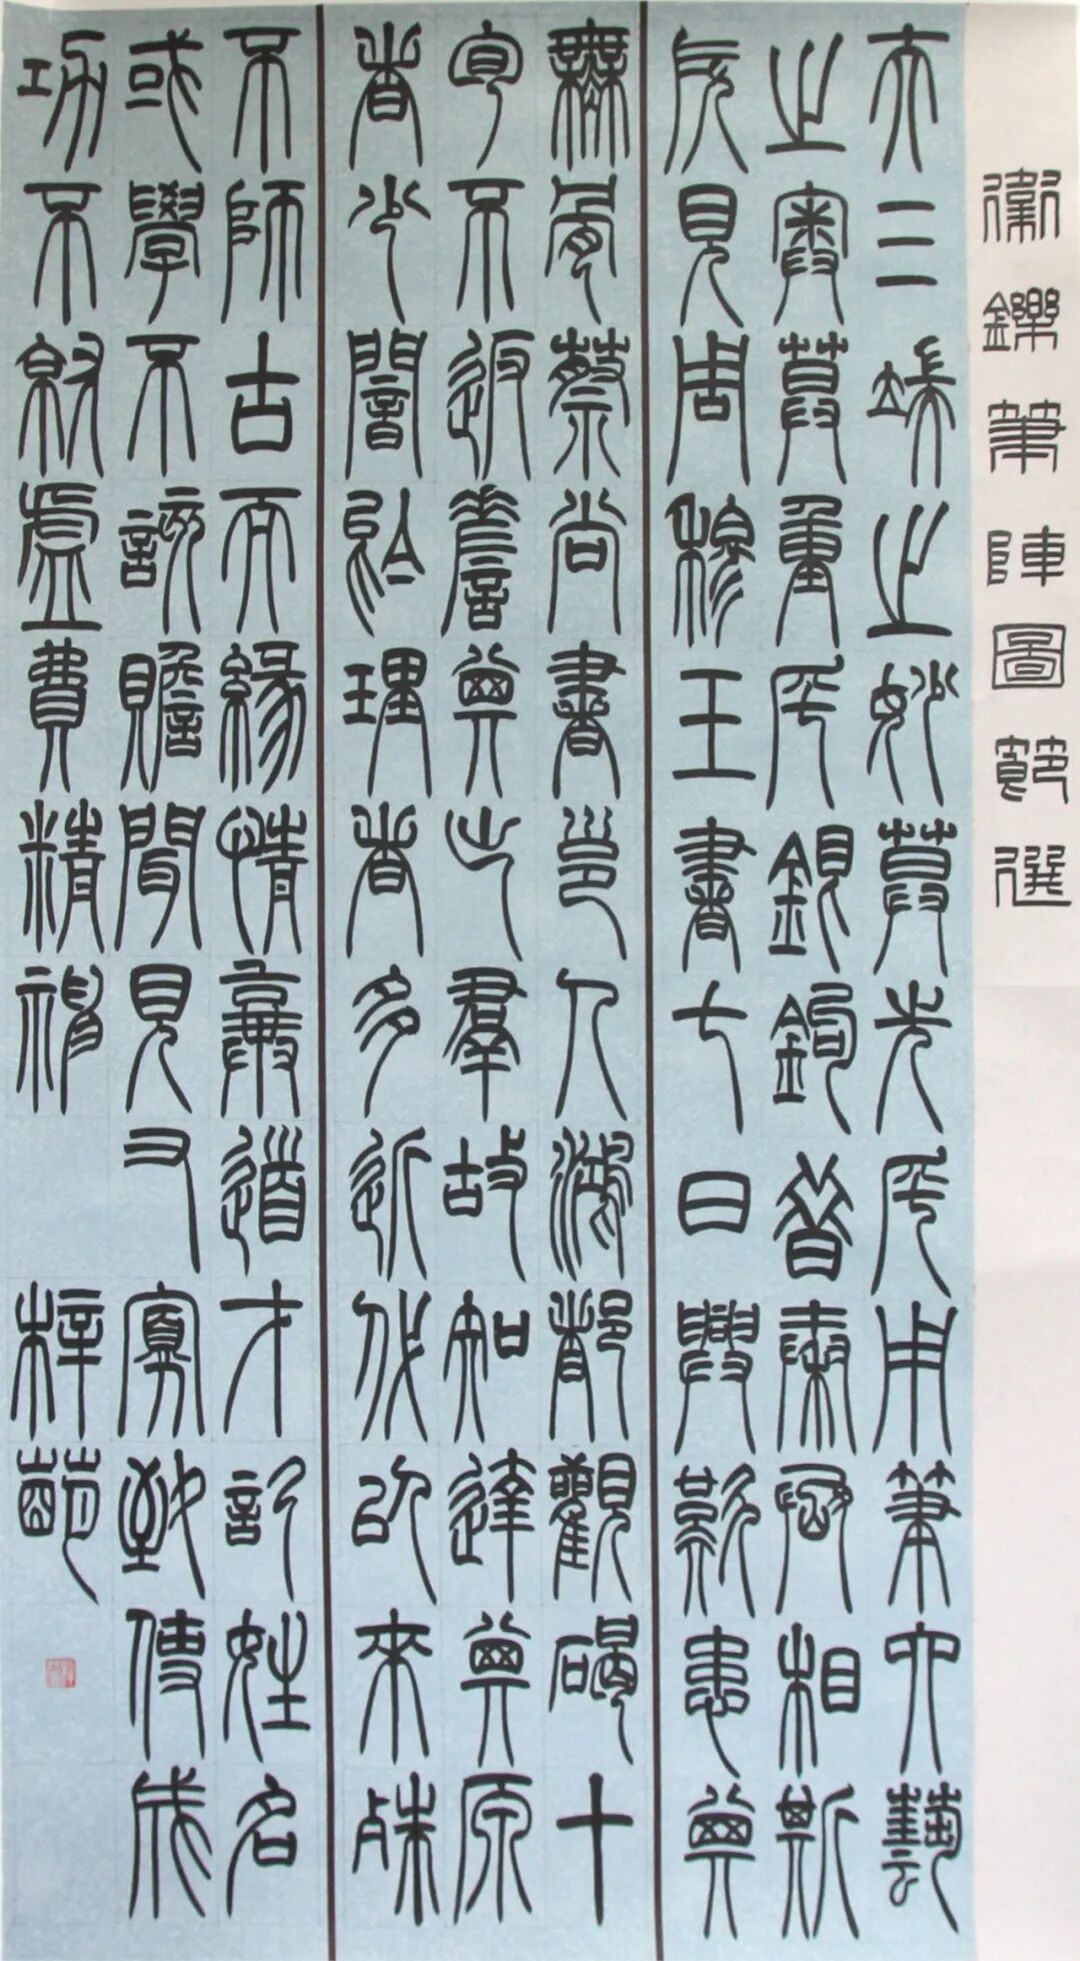 衛鑠筆陣圖節選
夫三端之妙莫先乎用筆六藝
之奧莫重乎銀鉤昔秦丞相斯
見周穆王書七日興歎患其
無骨蔡尚書邕入鴻都觀碣十
旬不返嗟其出羣故知達其原
者少闇於理者多近代以來殊
不師古而緣情棄道才記姓名
或學不該贍聞見又寡致使成
功不就虛費精神 梓齡